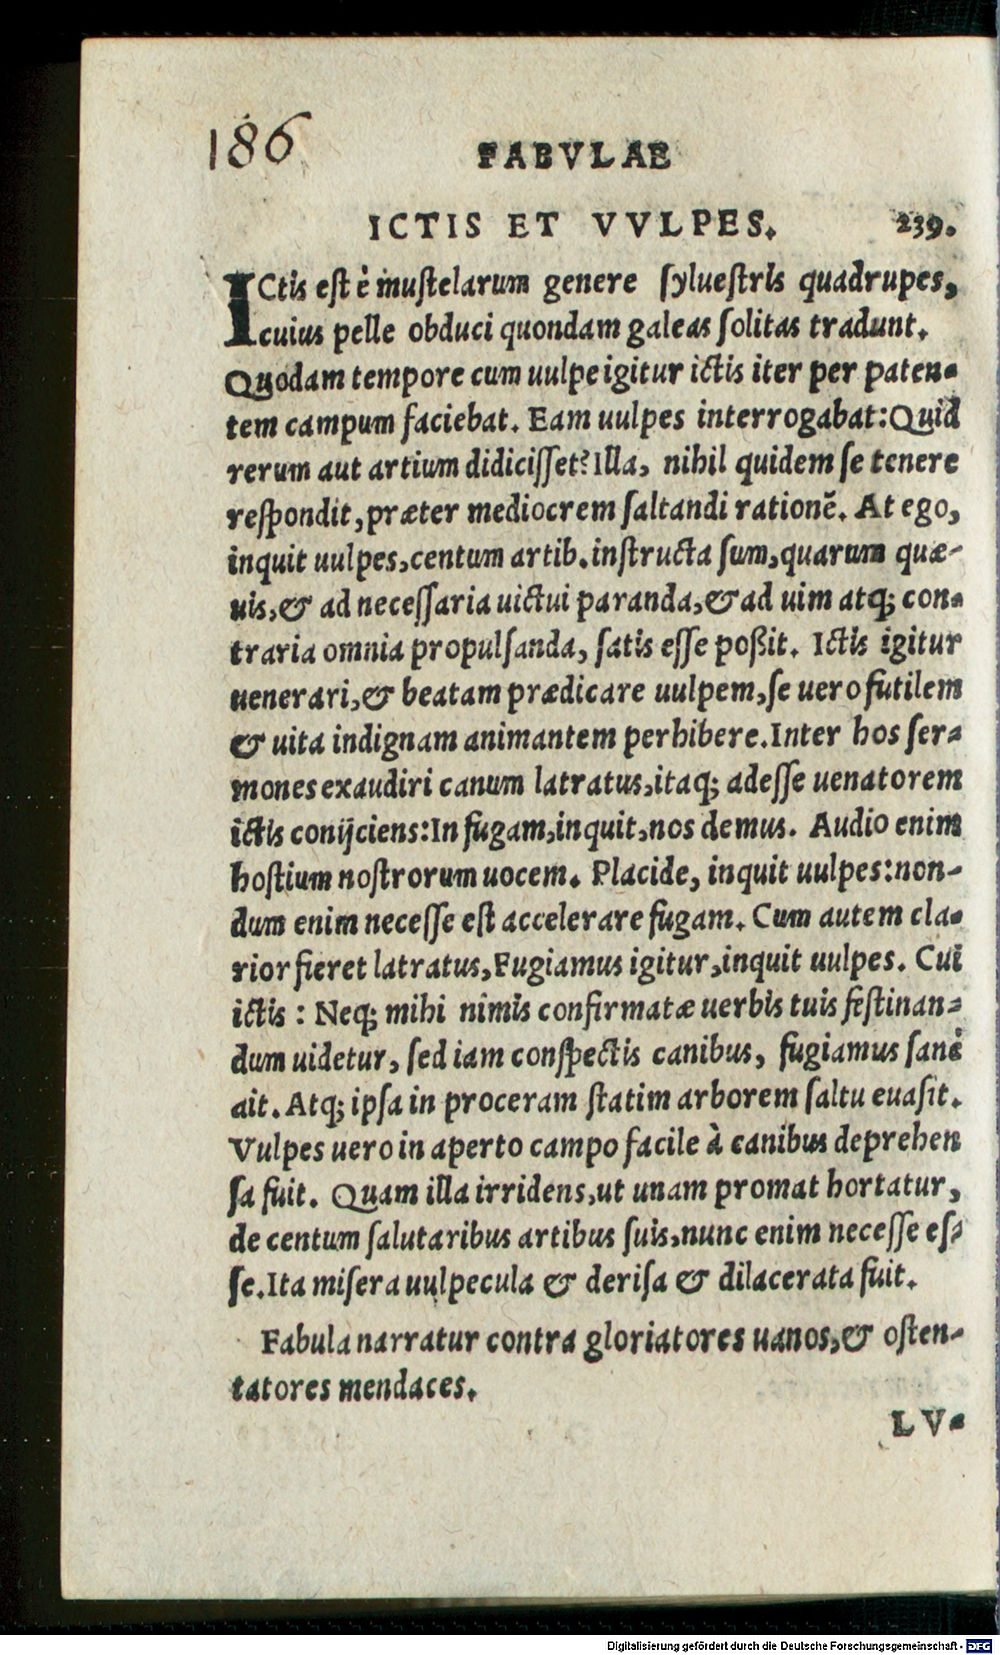 186
FABVLAE
ICTIS ET VVLPES. 239.
ICtis est è mustelarum genere syluestris quadrupes,
cuius pelle obduci quondam galeas solitas tradunt.
Quodam tempore cum uulpe igitur ictis iter per paten-
tem campum faciebat. Eam uulpes interrogabat: Quid
rerum aut artium didicisset? Illa, nihil quidem se tenere
respondit, præter mediocrem saltandi rationẽ. At ego,
inquit uulpes, centum artib. instructa sum, quarum quæ-
uis, & ad necessaria uictui paranda, & ad uim atq; con-
traria omnia propulsanda, satis esse poßit. Ictis igitur
uenerari, & beatam prædicare uulpem, se uero futilem
& uita indignam animantem perhibere. Inter hos ser-
mones exaudiri canum latratus, itaq; adesse uenatorem
ictis conijciens: In fugam, inquit, nos demus. Audio enim
hostium nostrorum uocem. Placide, inquit uulpes: non-
dum enim necesse est accelerare fugam. Cum autem cla-
rior fieret latratus, Fugiamus igitur, inquit uulpes. Cui
ictis : Neq; mihi nimis confirmatæ uerbis tuis festinan-
dum uidetur, sed iam conspectis canibus, fugiamus sanè
ait. Atq; ipsa in proceram statim arborem saltu euasit.
Vulpes uero in aperto campo facile à canibus deprehen
sa fuit. Quam illa irridens, ut unam promat hortatur,
de centum salutaribus artibus suis, nunc enim necesse es-
se. Ita misera uulpecula & derisa & dilacerata fuit.
Fabula narratur contra gloriatores uanos, & osten-
tatores mendaces.
LV-
Digitalisierung gefördert durch die Deutsche Forschungsgemeinschaft - DFG